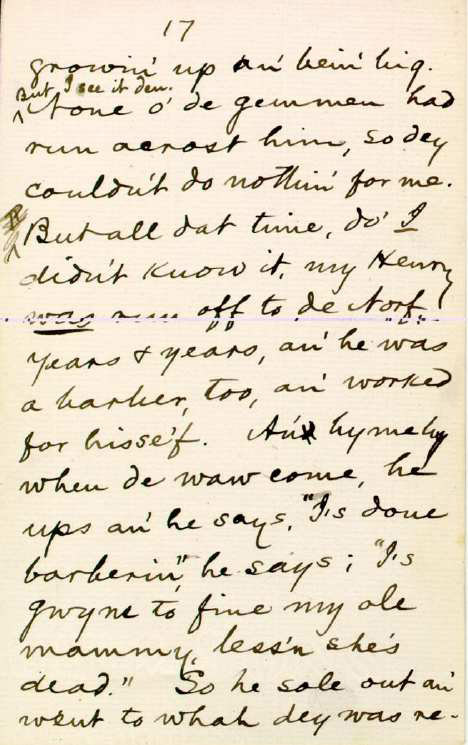 17
growin' up an' bein' big.
But I see it den.
None o' de gemmen had
run acrost him, so dey
couldn't do nothin' for me.
But all dat time, do' I
didn't know it, my Henry
was run off to de Norf
years & years, an' he was
a barber, too, an' worked
for hisse'f. An' bymeby
when de waw come, he
ups an' he says, "I's done
barberin'," he says; "I's
gwyne to fine my ole
mammy, less'n she's
dead." So he sole out an'
went to whah dey was re-